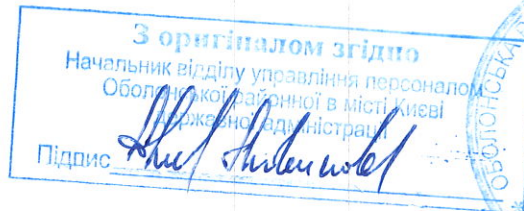 З оригіналом згідно
Начальник відділу управління персоналом
Оболонської районної в місті Києві
державної адміністрації
Підпис
ОБОЛОНСЬКА